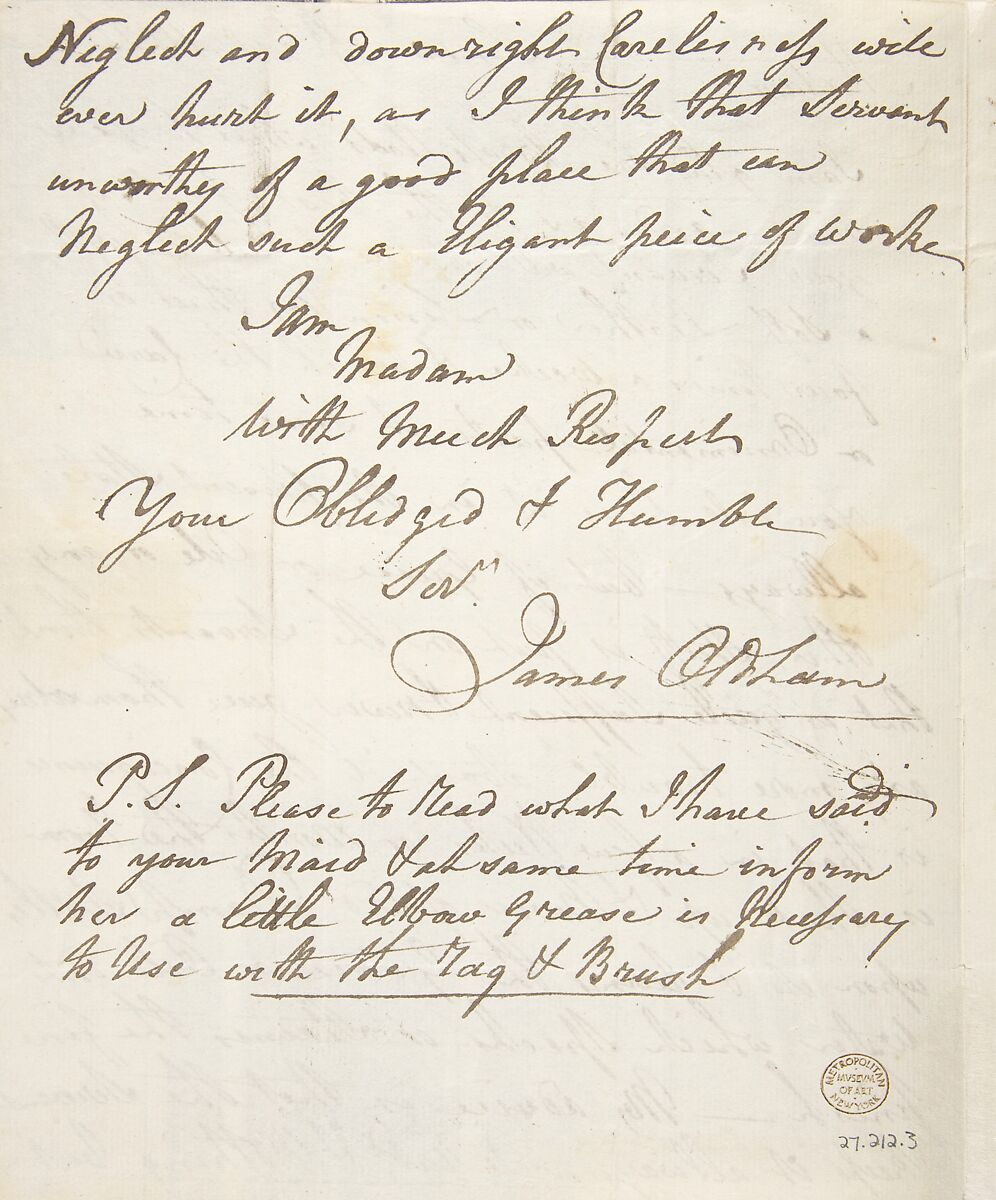 Neglect and downright Carelesness will
ever hurt it, as I think that Servant
unworthy of a good place that can
Neglect such a Eligant peice of worke
I am
Madam
with Much Respect
Your Obledged & Humble
Servt.
James Oldham
P.S. Please to Read what I have said
to your Maid & at same time inform
her a little Elbow Grease is Necessary
to Use with the Rag & Brush
METROPOLITAN
MVSEVM
OF ART
NEW YORK
27.212.3